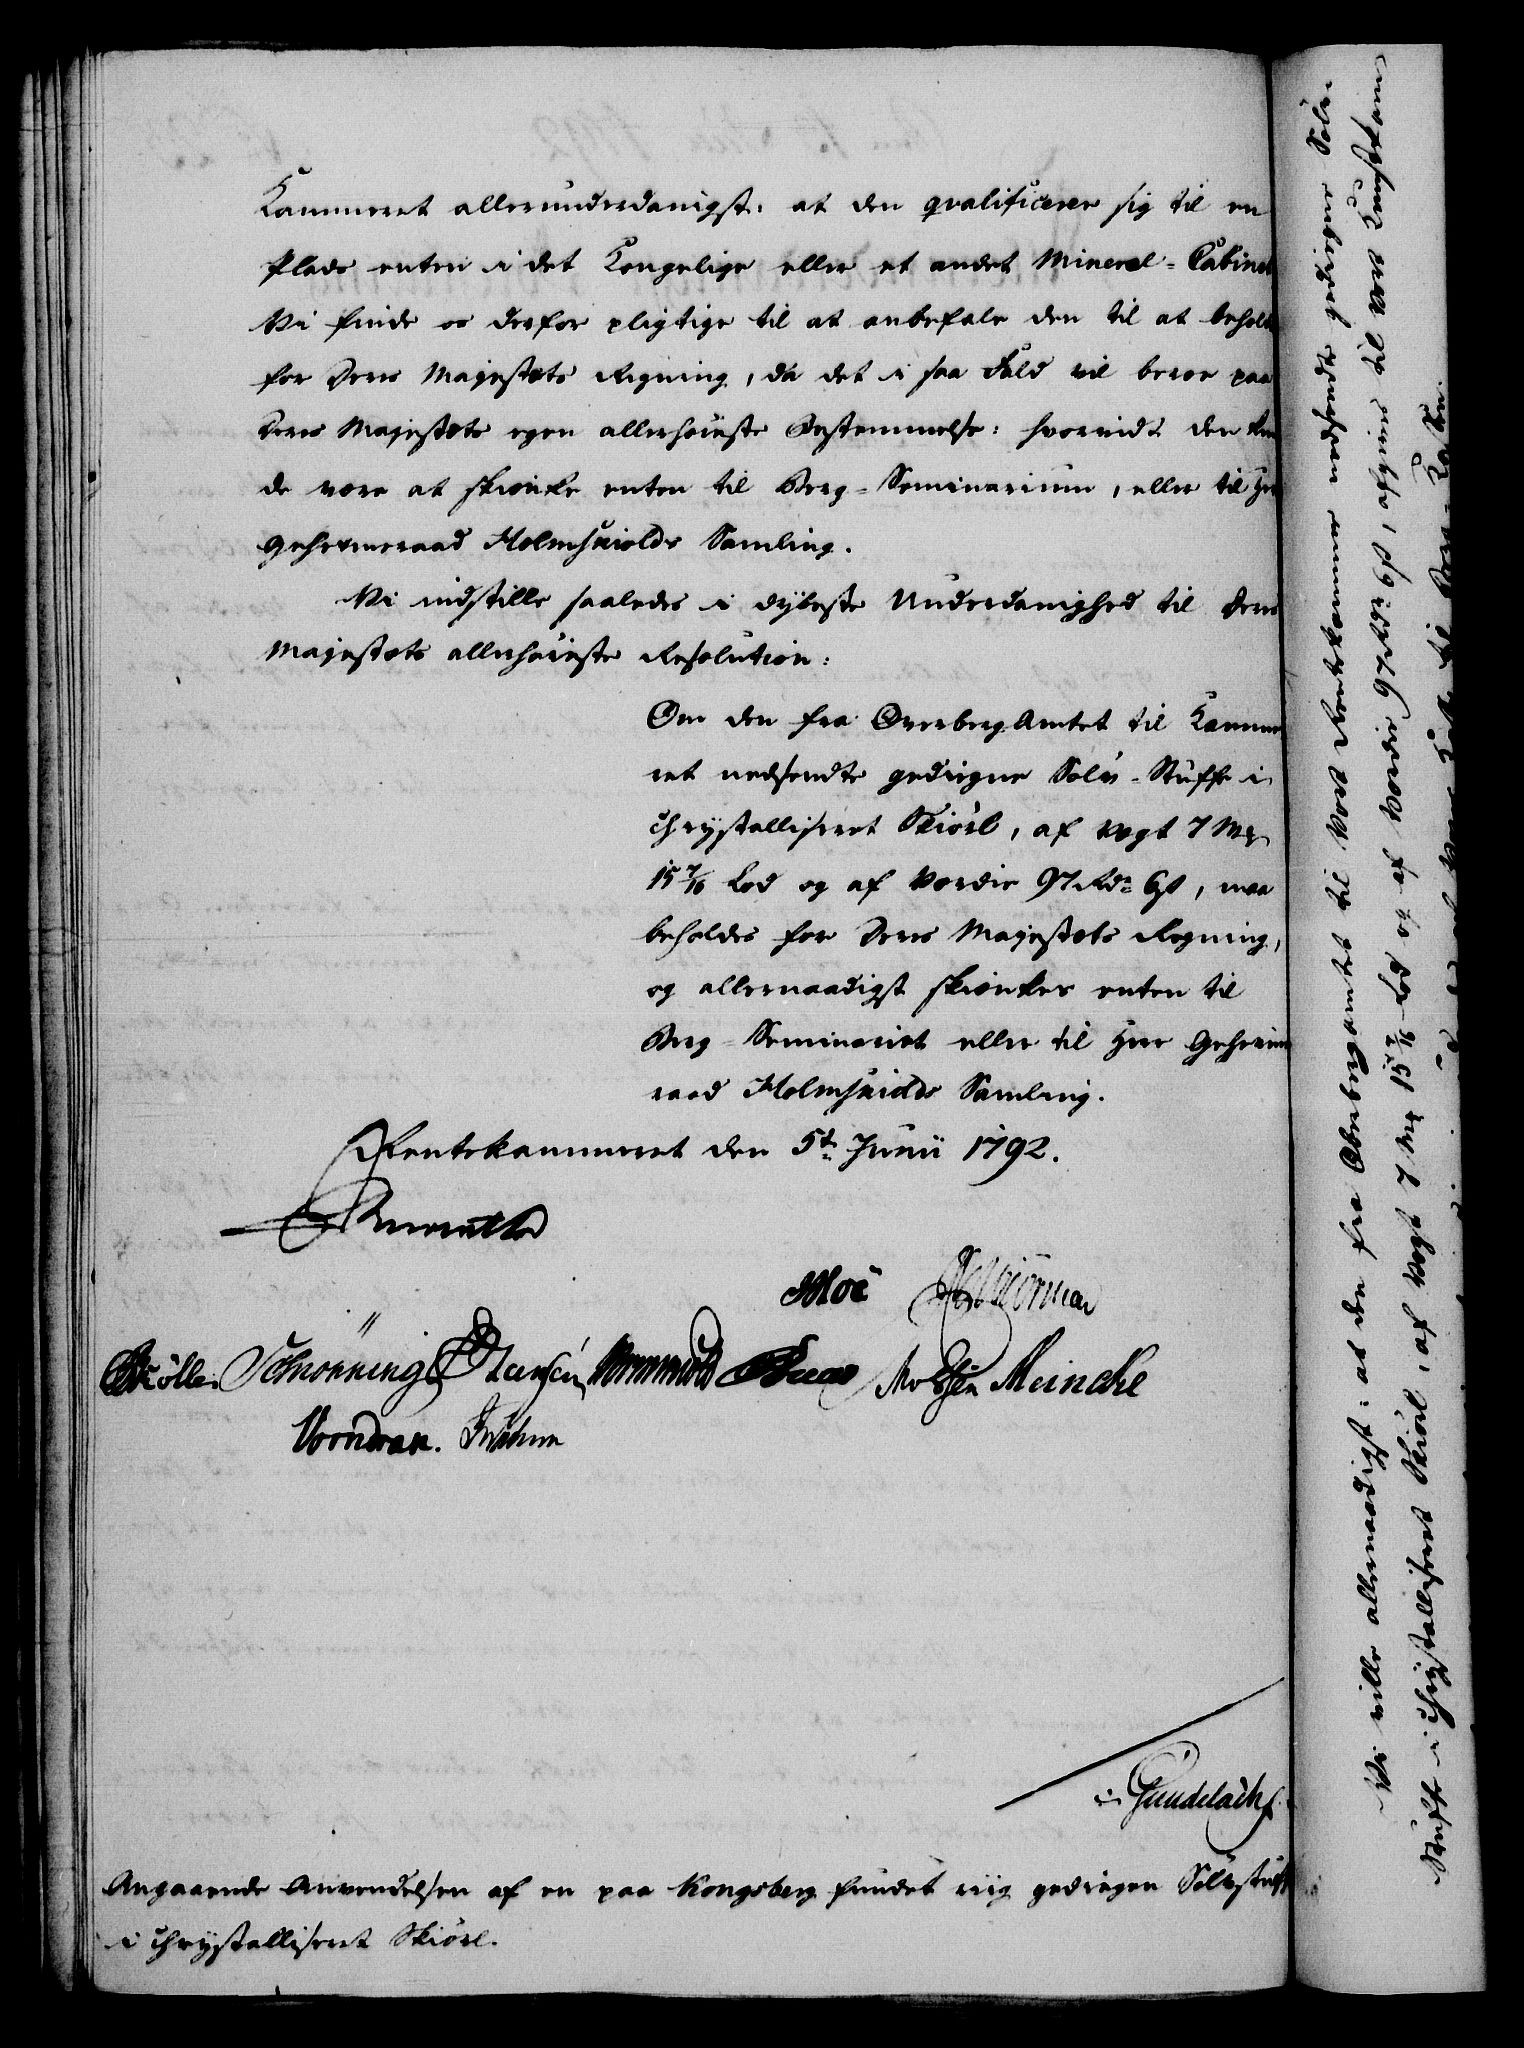 Kammeret allerunderdanigst: at den qvalificerer sig til en
Plads enten i det Kongelige eller et andet Mineral-Cabinet
Vi finde os derfor pligtige til at anbefale den til at beholdes
for Deres Majestæts Regning, da det i saa Fald vil beroe paa
Deres Majestæts egen allerhøieste Bestemmelse: hvorvidt den kun-
de være at skienke enten til Berg-Seminarium, eller til Herr
Geheimeraad Holmskiolds Samling.
Vi indstille saaledes i dybeste Underdanighed til Deres
Majestæts allerhøieste Resolution:
Om den fra Overberg Amtet til Kamme-
ret nedsendte gediegne Sølv-Stuffe i
chrystalliseret Skiörl, af Vegt 7 Mk
15 7/16 Lod og af Værdie 97 Rdr 6 ß, maa
beholdes for Deres Majestæts Regning,
og allernaadigst skienkes enten til
Berg-Seminariet eller til Herr Geheime-
raad Holmskiolds Samling.
Rentekammeret den 5te Junii 1792.
Moe
Schönning Hansen Meincke
Voondran.
Gundelach
Angaaende Anvendelsen af en paa Kongsberg fundet riig gediegen Sølvstuff
i chrystalliseret Skiörl.
Vi ville allernaadigst: at den fra Oberbergamtet til Vort Rentekammer nedsendte gediegne Sølv-
Stuffe i chrystalliseret Skiörl, af Vegt 7 Mk 15 7/16 Lod og af Værdie 97 Rdr 6 ß, afgives til Vort Kunstkam-